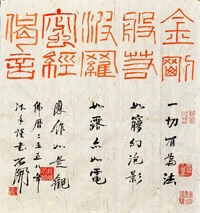 金剛
般若
波羅
蜜經
偈言
一切有為法
如夢幻泡影
如露亦如電
應作如是觀
佛曆二五五八年
沐手謹書